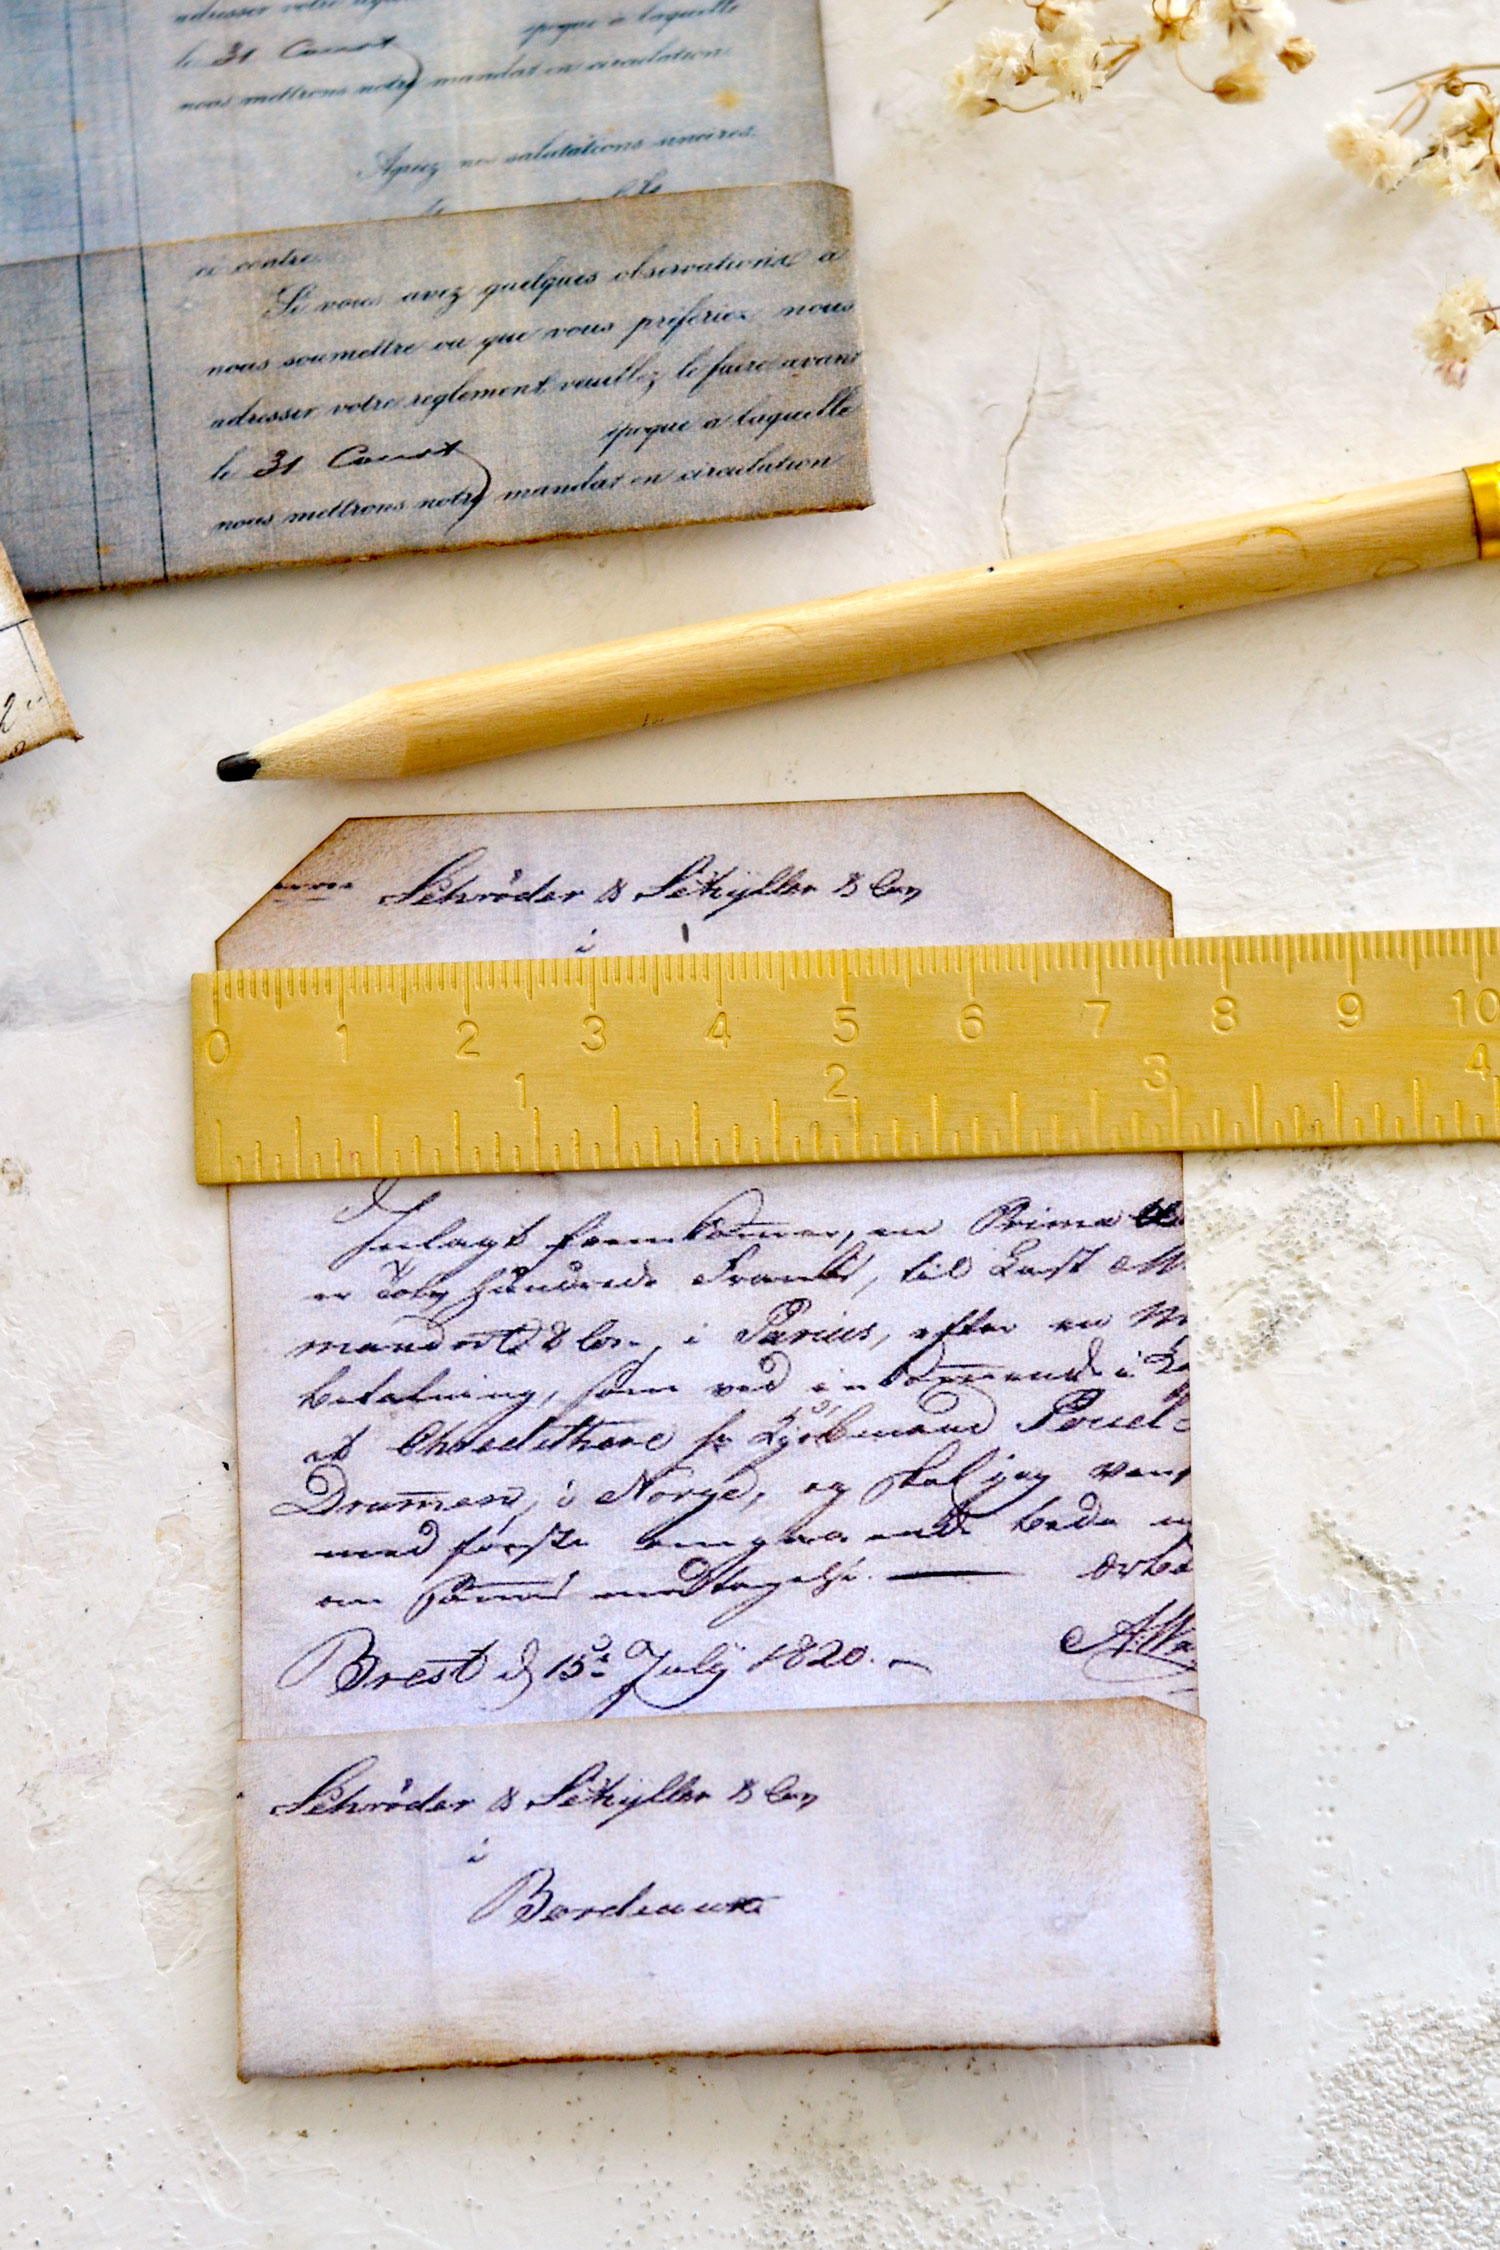 adresser votre
époque à laquelle
le 31 Court
nous mettrons notre mandat en circulation
Agréez nos salutations sincères.
ci contre.
Si vous avez quelques observations à
nous soumettre ou que vous préfériez nous
adresser votre règlement veuillez le faire avant
le 31 Court époque à laquelle
nous mettrons notre mandat en circulation
2
Schröder & Schÿller & Co
i
0 1 2 3 4 5 6 7 8 9 10
1 2 3 4
Indlagt fremkommer, en Prima
er hundrede Francs, til Last M
& Co., i Pariis, efter en
betalning, som ved i
Kjöbmand Poul
Dramen, i Norge, og skal jeg
med förste omgaaende bede
om Sammes modtagelse. —
Brest d 15 Julÿ 1820.
Schröder & Schÿller & Co
i
Bordeaux